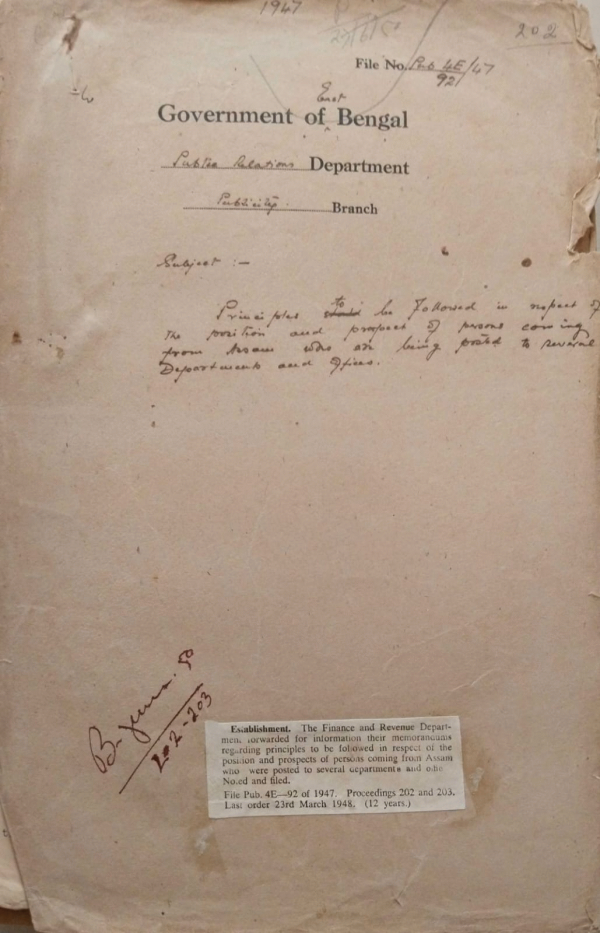 1947
202
File No. Pub 4E/47
92
East
Government of ^ Bengal
Public Relations Department
Publicity. Branch
Subject :-
Principles to be followed in respect of
the position and prospect of persons coming
from Assam who are being posted to several
Departments and Offices.
B. 50
202-203
Establishment. The Finance and Revenue Depart-
ment forwarded for information their memorandums
regarding principles to be followed in respect of the
position and prospects of persons coming from Assam
who were posted to several departments and
Noted and filed.
File Pub. 4E—92 of 1947. Proceedings 202 and 203.
Last order 23rd March 1948. (12 years.)